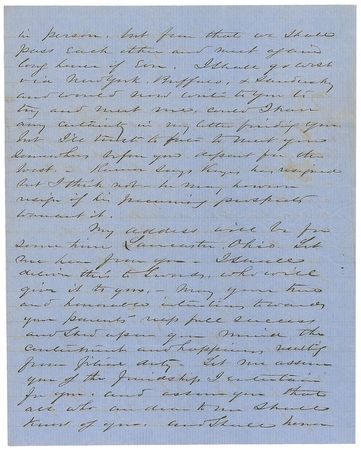 in person, but fear that we shall
pass each other and not again
long hence of Eon. I shall go West
via New York Buffalo & Sandusky
and would now write to you to
try and meet me, could I have
any certainty in my letter finding you
but I'll trust to fate to meet you
somewhere before you depart for the
West. Rumor says Keyes has resigned
but I think not. he may however
resign if his pecuniary prospects
warrant it.
My address will be for
some time Lancaster, Ohio. Let
me hear from you. I shall
deliver this to who will
give it to you. May your true
and honorable intentions towards
your parents reap full success
and shed upon your mind the
contentment and happiness resulting
from filial duty. Let me assure
you of the friendship I entertain
for you, and assure you that
all who are dear to me shall
know of you, and shall honor